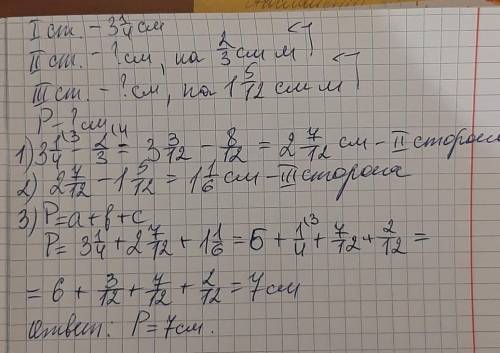 I ст. - 3 1/4 см
II ст. - ? см, на 2/3 см м
III ст. - ? см, на 1 5/12 см м
P - ? см
1) 3 1/4 - 2/3 = 3 3/12 - 8/12 = 2 7/12 см - II сторона
2) 2 7/12 - 1 5/12 = 1 1/6 см - III сторона
3) P=a+b+c
P= 3 1/4 + 2 7/12 + 1 1/6 = 6 + 1/4 + 7/12 + 2/12 =
= 6 + 3/12 + 7/12 + 2/12 = 7 см
Ответ: P=7см.